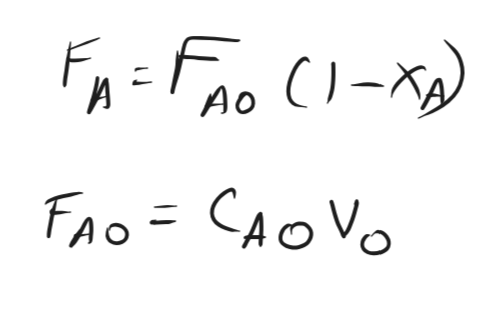 F_A = F_A0 (1 - x_A)
F_A0 = C_A0 V_0